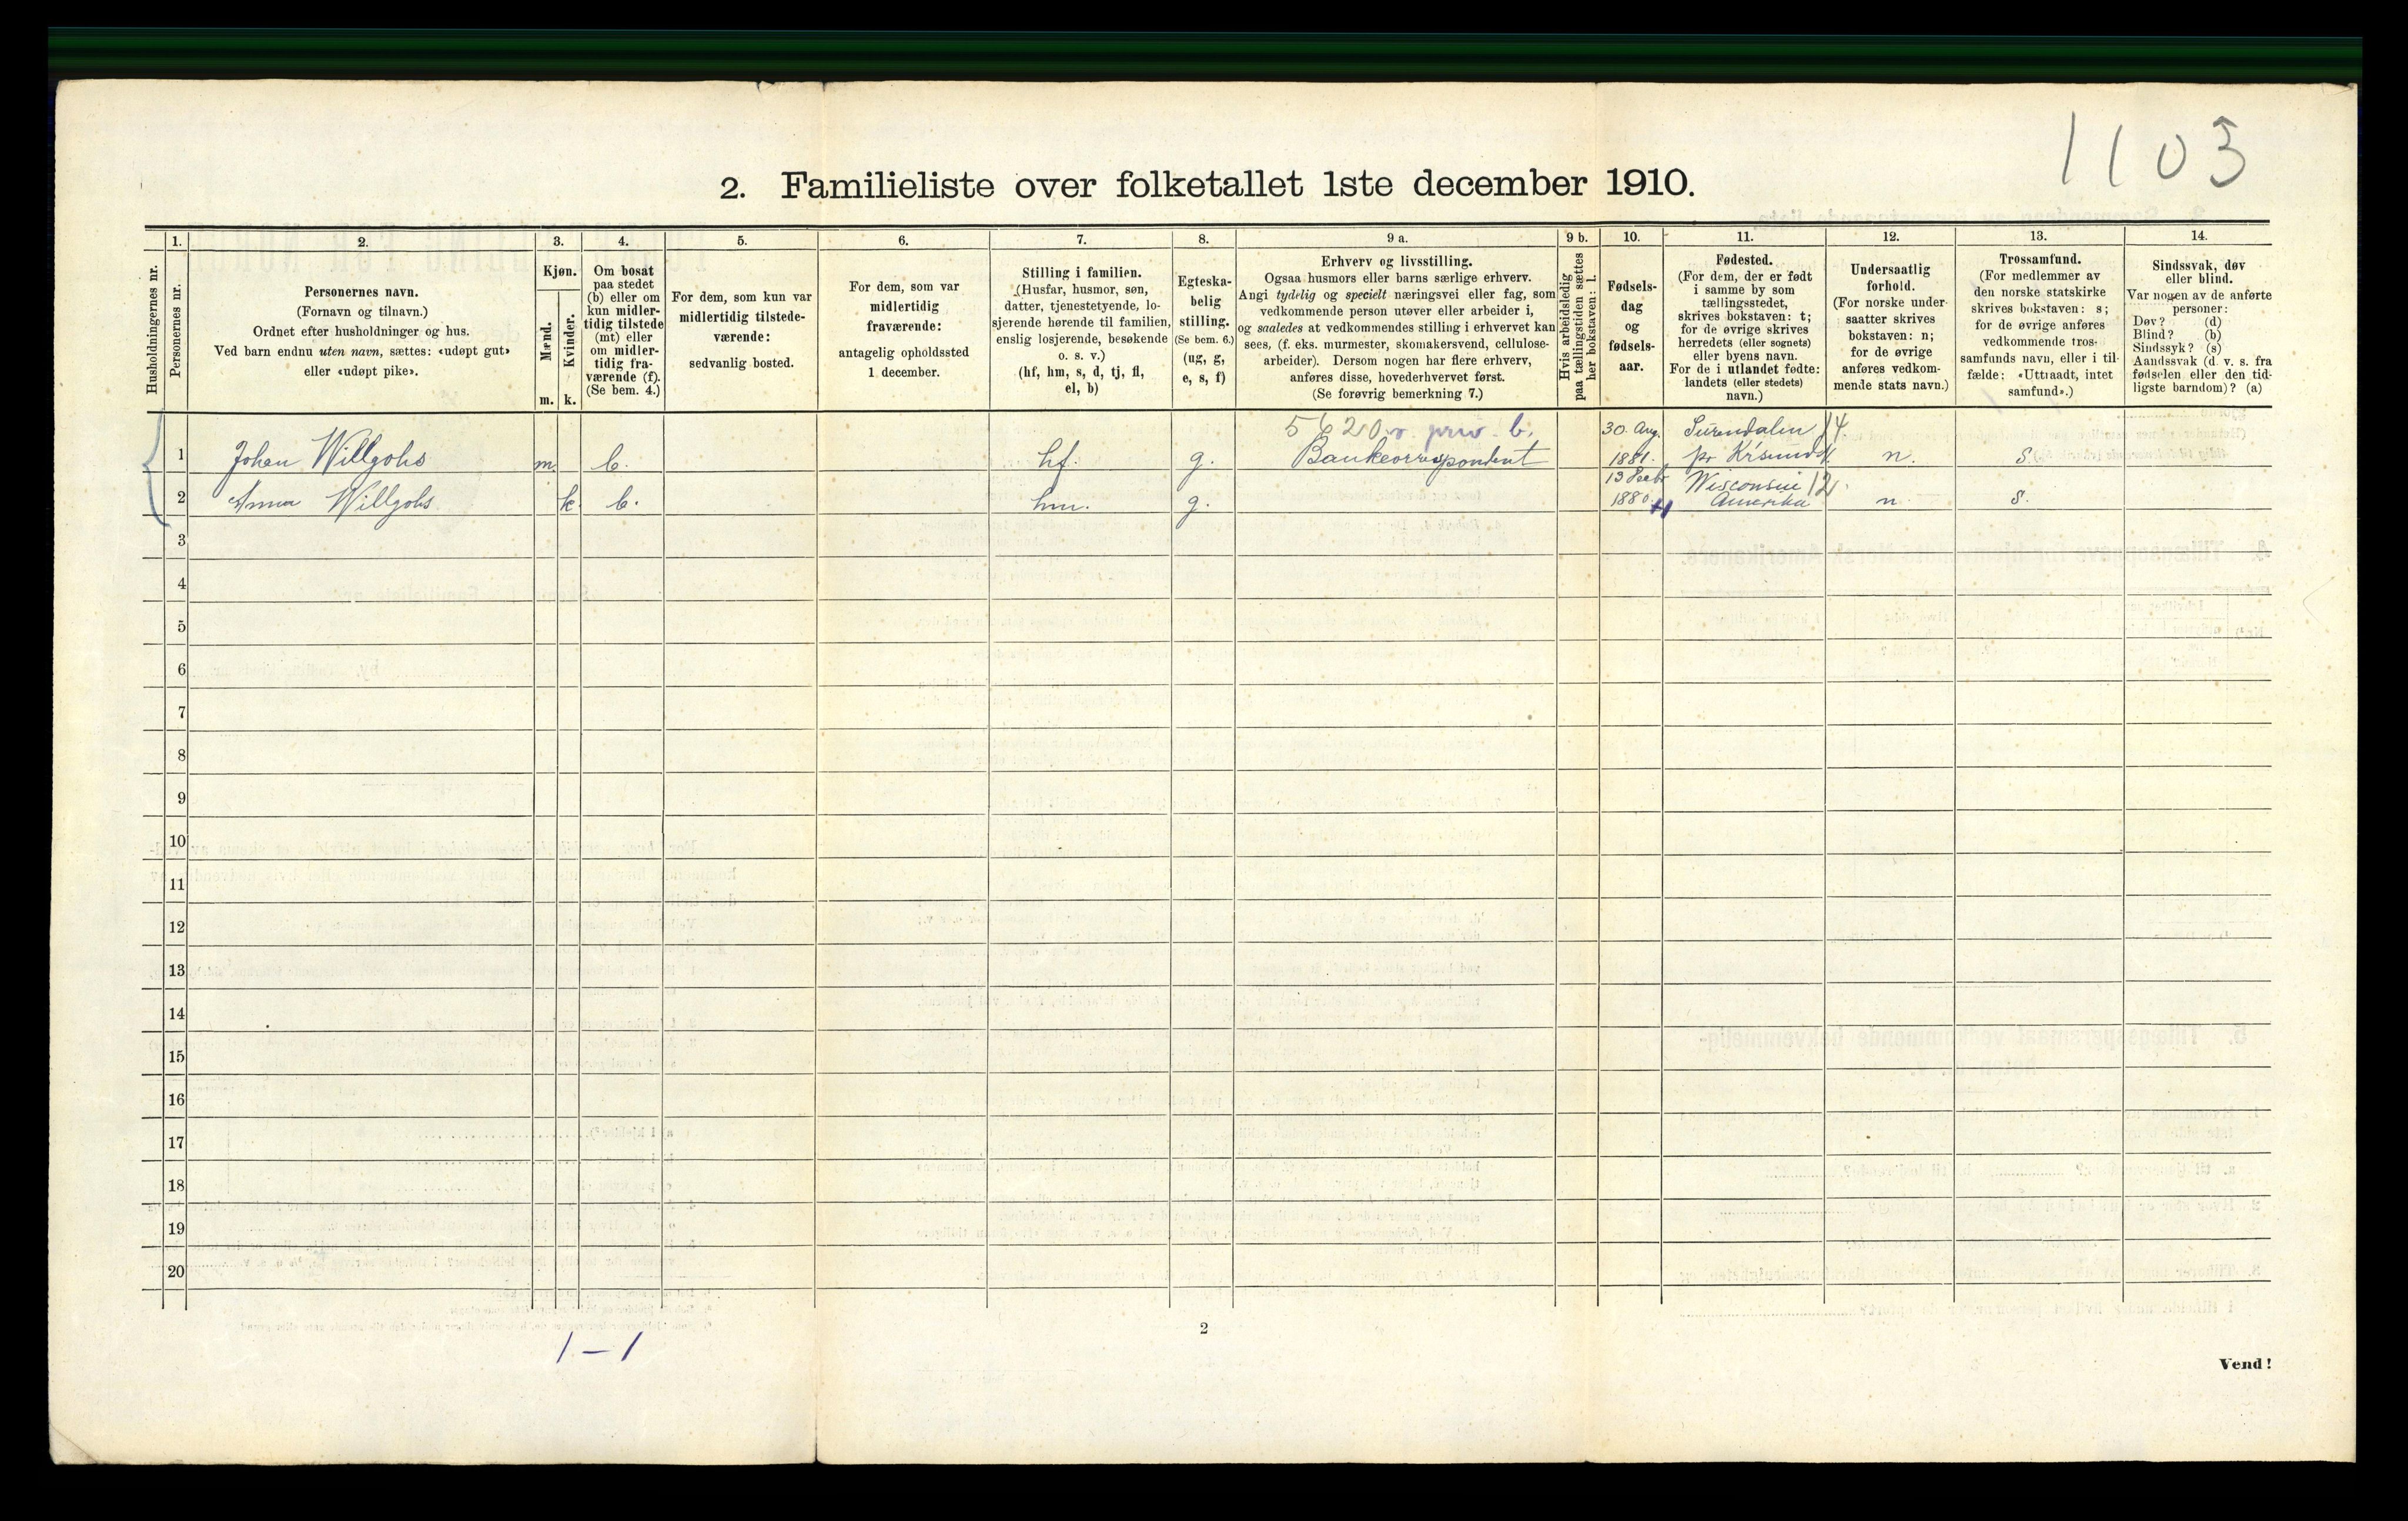 1103
2. Familieliste over folketallet 1ste december 1910.
1. 2. 3. 4. 5. 6. 7. 8. 9 a. 9 b. 10. 11. 12. 13. 14.
Husholdningernes nr.
Personernes nr.
Personernes navn.
(Fornavn og tilnavn.)
Ordnet efter husholdninger og hus.
Ved barn endnu uten navn, sættes: «udøpt gut»
eller «udøpt pike».
Kjøn.
Mænd.
Kvinder.
m. k.
Om bosat
paa stedet
(b) eller om
kun midler-
tidig tilstede
(mt) eller
om midler-
tidig fra-
værende (f).
(Se bem. 4.)
For dem, som kun var
midlertidig tilstede-
værende:
sedvanlig bosted.
For dem, som var
midlertidig
fraværende:
antagelig opholdssted
1. december.
Stilling i familien.
(Husfar, husmor, søn,
datter, tjenestetyende, lo-
sjerende hørende til familien,
enslig losjerende, besøkende
o. s. v.)
(hf, hm, s, d, tj, fl,
el, b)
Egteska-
belig
stilling.
(Se bem. 6.)
(ug, g,
e, s, f)
Erhverv og livsstilling.
Ogsaa husmors eller barns særlige erhverv.
Angi tydelig og specielt næringsvei eller fag, som
vedkommende person utøver eller arbeider i,
og saaledes at vedkommendes stilling i erhvervet kan
sees, (f. eks. murmester, skomakersvend, cellulose-
arbeider). Dersom nogen har flere erhverv,
anføres disse, hovederhvervet først.
(Se forøvrig bemerkning 7.)
Hvis arbeidsledig
paa tællingstiden sættes
her bokstaven: l.
Fødsels-
dag
og
fødsels-
aar.
Fødested.
(For dem, der er født
i samme by som
tællingsstedet,
skrives bokstaven: t;
for de øvrige skrives
herredets (eller sognets)
eller byens navn.
For de i utlandet fødte:
landets (eller stedets)
navn.)
Undersaatlig
forhold.
(For norske under-
saatter skrives
bokstaven: n;
for de øvrige
anføres vedkom-
mende stats navn.)
Trossamfund.
(For medlemmer av
den norske statskirke
skrives bokstaven: s;
for de øvrige anføres
vedkommende tros-
samfunds navn, eller i til-
fælde: «Uttraadt, intet
samfund».)
Sindssvak, døv
eller blind.
Var nogen av de anførte
personer:
Døv? (d)
Blind? (b)
Sindssyk? (s)
Aandssvak (d. v. s. fra
fødselen eller den tid-
ligste barndom)? (a)
5620 priv. b. 30. Aug. Surendalen 14
1 Johan Willgohs m. b. hf. g. Bankcorrespondent 1881. pr Kr'sund n. s.
13 Wisconsin 12
2 Anna Willgohs k. b. hm. g. 1880. Amerika n. s.
3
4
5
6
7
8
9
10
11
12
13
14
15
16
17
18
19
20
1-1
2
Vend!